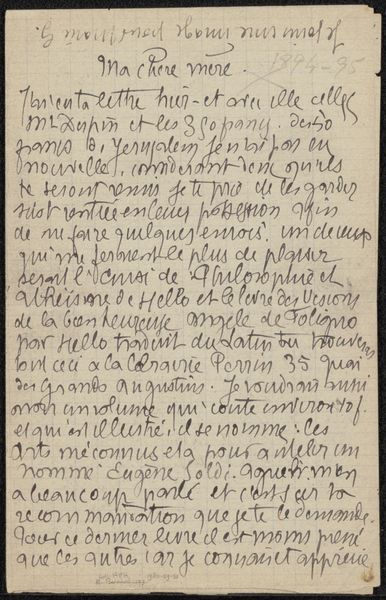 Ma chère mère.
1894-95
J'ai eu ta lettre hier et avec elle celle
Mr Dupin et les 350 francs. des 50
francs de Jerusalem je n'ai pas eu
nouvelles, considerant donc qu'ils
te seront venus je te prie de les garder
en leur possession afin
de me faire quelques envois. un de ceux
qui me feraient le plus de plaisir
serait l' de Philosophie et
atheisme de Hello et le livre des Visions
de la bienheureuse Angele de Foligno
par Hello traduit du Latin tu trouveras
tout ceci a la librairie Perrin 35 quai
des Grands Augustins. Je voudrais aussi
avoir un volume qui coute environ
et qui est illustré, il se nomme: Les
Arts méconnus et a pour auteur un
nommé Eugène Soldi.
a beaucoup parlé et c'est sur sa
recommandation que je te le demande.
Pour ce dernier livre il est moins pressé
que les autres car je